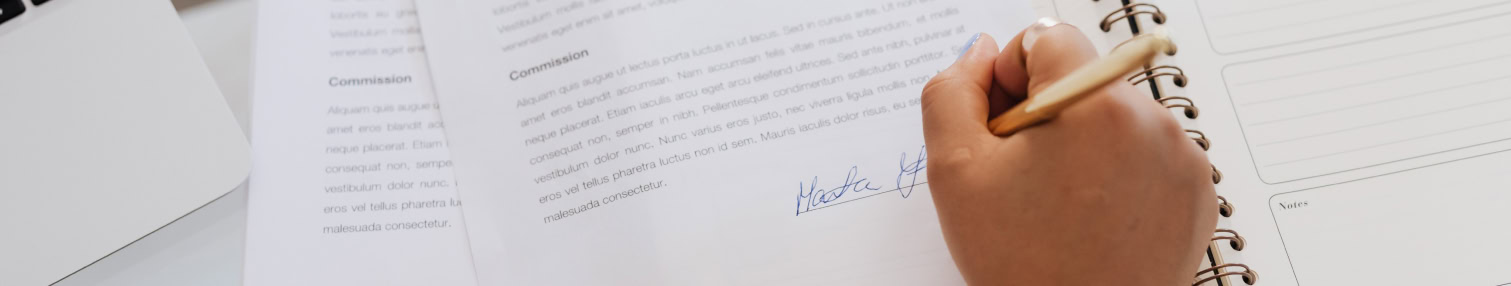 lobortis au
Vestibulum
venenatis eget
Commission
Aliquam quis augue
amet eros blandit
neque placerat. Etiam
consequat non,
vestibulum dolor nunc.
eros vel tellus pharetra
malesuada consectetur.
lobortis
Vestibulum mollis
venenatis eget enim sit amet,
Commission
Aliquam quis augue ut lectus porta luctus in ut lacus. Sed in cursus ante. Ut non
amet eros blandit accumsan. Nam accumsan felis vitae mauris bibendum, et mollis
neque placerat. Etiam iaculis arcu eget arcu eleifend ultrices. Sed ante nibh, pulvinar at
consequat non, semper in nibh. Pellentesque condimentum sollicitudin porttitor.
vestibulum dolor nunc. Nunc varius eros justo, nec viverra ligula mollis non
eros vel tellus pharetra luctus non id sem. Mauris iaculis dolor risus, eu
malesuada consectetur.
Notes